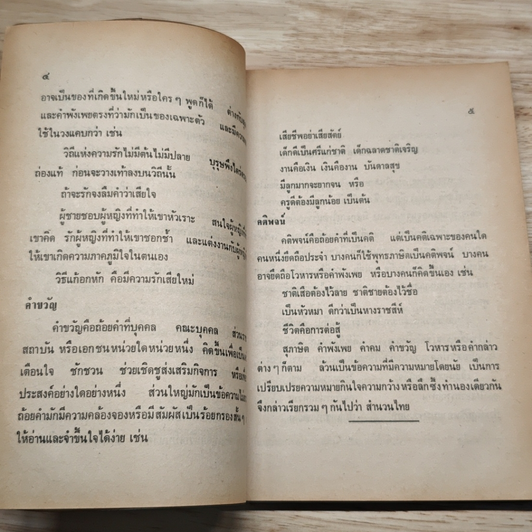 ๔
อาจเป็นของที่เกิดขึ้นใหม่หรือใคร ๆ พูดก็ได้
และคำพังเพยตรงที่ว่ามักเป็นของเฉพาะตัว
ใช้ในวงแคบกว่า เช่น
วิถีแห่งความรักไม่มีต้นไม่มีปลาย บุรุษพึงไตร่ตรอง
ถ่องแท้ ก่อนจะวางเท้าลงบนวิถีนั้น
ถ้าจะรักจงลืมคำว่าเสียใจ
ผู้ชายชอบผู้หญิงที่ทำให้เขาหัวเราะ สนใจผู้หญิงที่
เขาคิด รักผู้หญิงที่ทำให้เขาชอกช้ำ และแต่งงานกับผู้หญิง
ให้เขาเกิดความภาคภูมิใจในตนเอง
วิธีแก้อกหัก คือมีความรักเสียใหม่
คำขวัญ
คำขวัญคือถ้อยคำที่บุคคล คณะบุคคล ส่วนราช
สถาบัน หรือเอกชนหน่วยใดหน่วยหนึ่ง คิดขึ้นเพื่อเป็น
เตือนใจ ชักชวน ช่วยเชิดชูส่งเสริมกิจการ หรือ
ประสงค์อย่างใดอย่างหนึ่ง ส่วนใหญ่มักเป็นข้อความ
ถ้อยคำมักมีความคล้องจองหรือมีสัมผัสเป็นร้อยกรองสั้น ๆ
ให้อ่านและจำขึ้นใจได้ง่าย เช่น
๕
เสียชีพอย่าเสียสัตย์
เด็กดีเป็นศรีแก่ชาติ เด็กฉลาดชาติเจริญ
งานคือเงิน เงินคืองาน บันดาลสุข
มีลูกมากจะยากจน หรือ
ครูดีต้องมีลูกน้อย เป็นต้น
คติพจน์
คติพจน์คือถ้อยคำที่เป็นคติ แต่เป็นคติเฉพาะของคนใด
คนหนึ่งยึดถือประจำ บางคนก็ใช้พุทธภาษิตเป็นคติพจน์ บางคน
อาจยึดถือโวหารหรือคำพังเพย หรือบางคนก็คิดขึ้นเอง เช่น
ชาติเสือต้องไว้ลาย ชาติชายต้องไว้ชื่อ
เป็นหัวหมา ดีกว่าเป็นหางราชสีห์
ชีวิตคือการต่อสู้
สุภาษิต คำพังเพย คำคม คำขวัญ โวหารหรือคำกล่าว
ต่างๆก็ตาม ล้วนเป็นข้อความที่มีความหมายโดยนัย เป็นการ
เปรียบเปรยความหมายกินใจความกว้างหรือลึกซึ้ง ทำนองเดียวกัน
จึงกล่าวเรียกรวม ๆ กันไปว่า สำนวนไทย